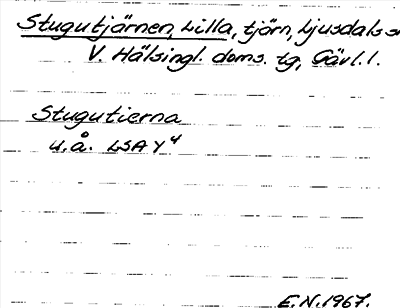 Stugutjärnen, Lilla, tjärn, Ljusdals s
V. Hälsingl. doms. tg, Gävl. l.
Stugutierna
u.å. LSA Y4
E.N. 1967.